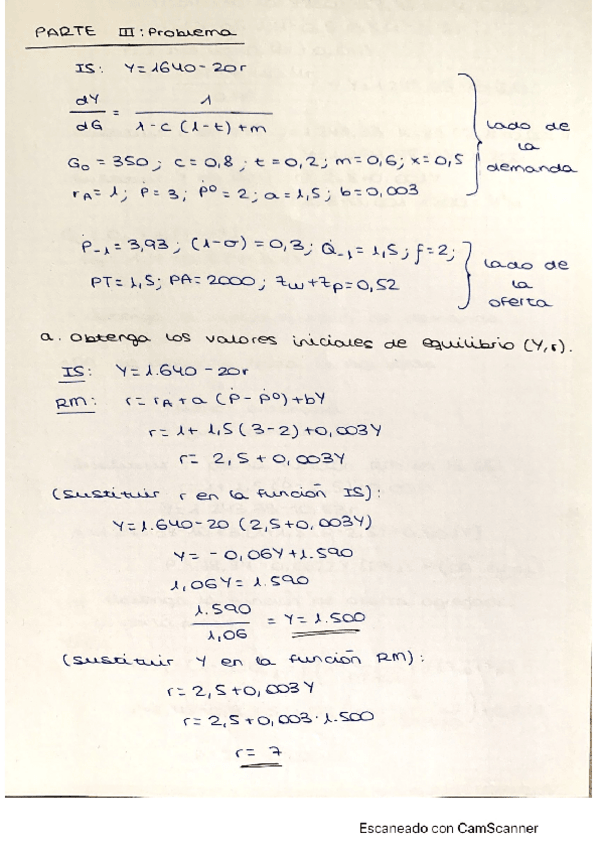 PARTE III: Problema
IS: Y=1640-20r
dY/dG = 1/(1-c(1-t)+m)
G₀=350; c=0,8; t=0,2; m=0,6; x=0,5
rA=1; Ṗ=3; Ṗ⁰=2; a=1,5; b=0,003
lado de
la
demanda
Ṗ-1=3,93; (1-σ)=0,3; Q̇-1=1,5; f=2;
PT=1,5; PA=2000; zw+zp=0,52
lado de
la
oferta
a. Obtenga los valores iniciales de equilibrio (Y,r).
IS: Y=1.640-20r
RM: r=rA+a(Ṗ-Ṗ⁰)+bY
r=1+1,5(3-2)+0,003Y
r=2,5+0,003Y
(sustituir r en la función IS):
Y=1.640-20(2,5+0,003Y)
Y=-0,06Y+1.590
1,06Y=1.590
1.590/1,06 = Y=1.500
(sustituir Y en la función RM):
r=2,5+0,003Y
r=2,5+0,003·1.500
r=7
Escaneado con CamScanner